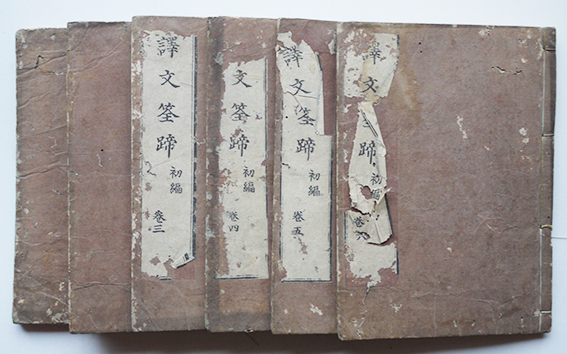 譯文筌蹄 初編 卷三
文筌蹄 初編 卷四
譯文筌蹄 初編 卷五
譯文筌蹄 初編 卷六